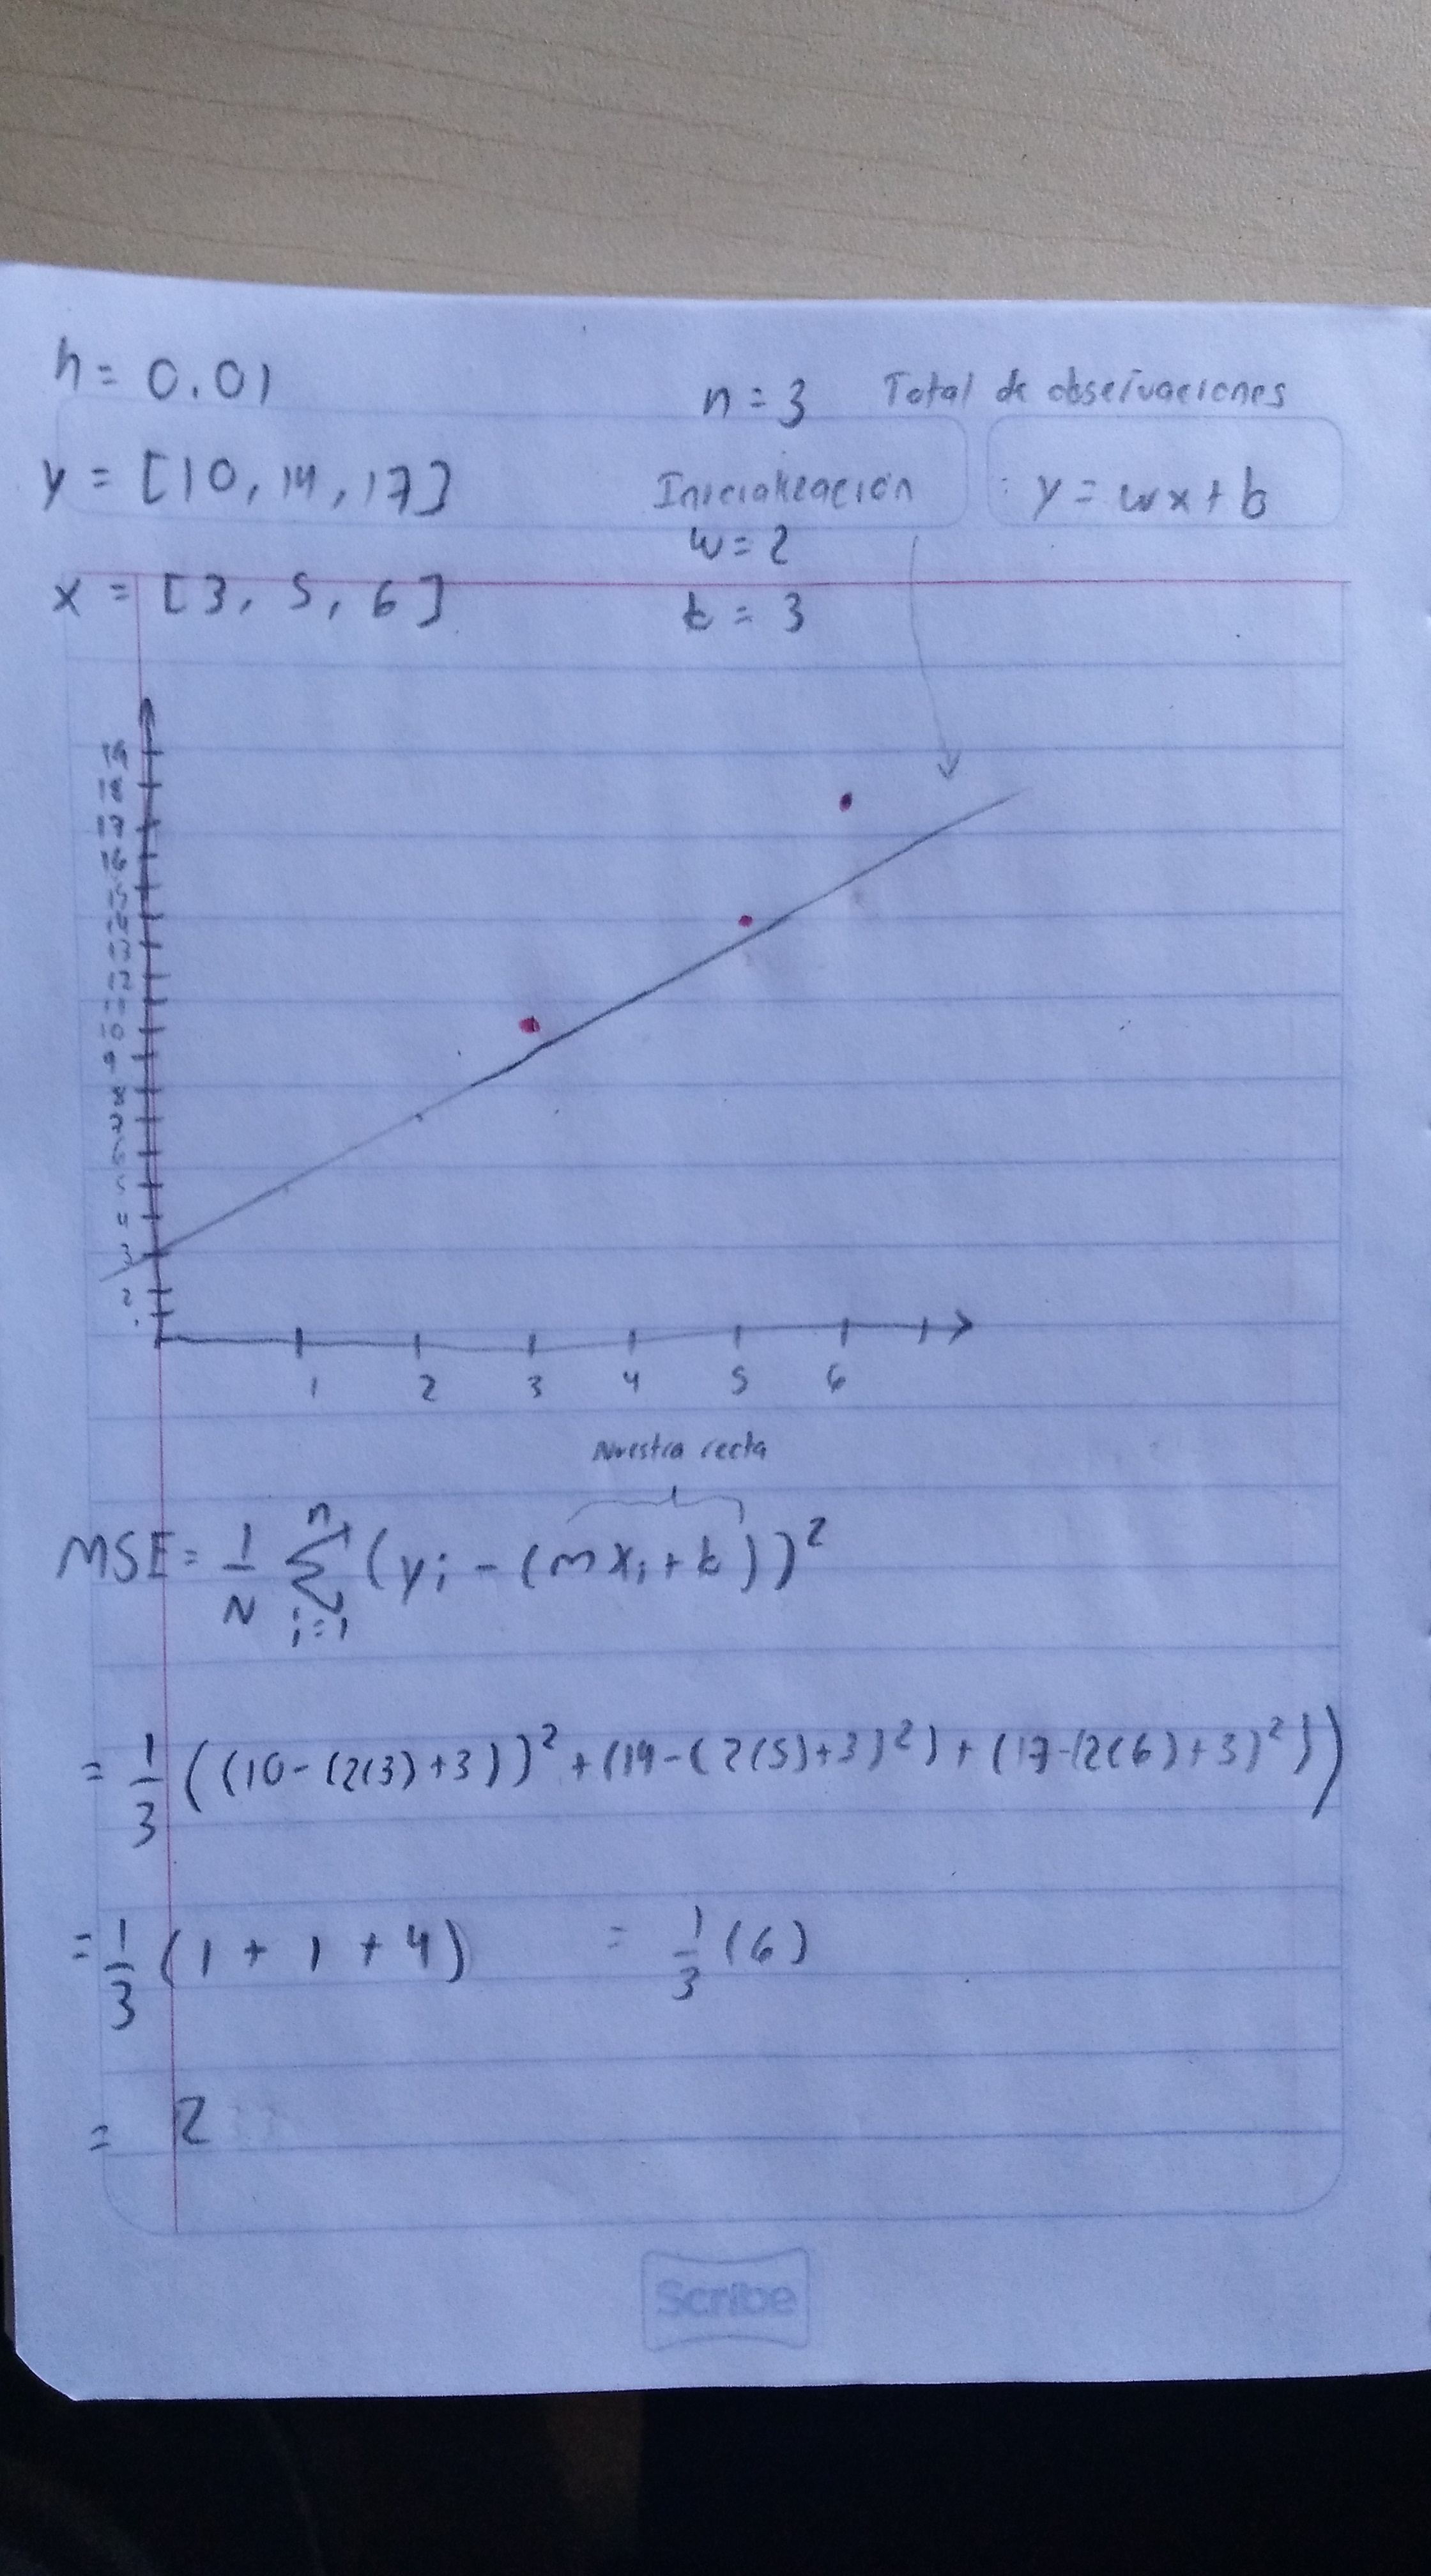 h = 0.01
n = 3 Total de observaciones
y = [10, 14, 17]
Inicialización
y = wx + b
w = 2
x = [3, 5, 6]
b = 3
19
18
17
16
15
14
13
12
11
10
9
8
7
6
5
4
3
2
1 2 3 4 5 6
Nuestra recta
MSE = 1/N Σ_{i=1}^{n} (yi - (mxi + b))²
= 1/3 ((10 - (2(3) + 3))² + (14 - (2(5) + 3)²) + (17 - (2(6) + 3)²))
= 1/3 (1 + 1 + 4) = 1/3 (6)
= 2
Scribe